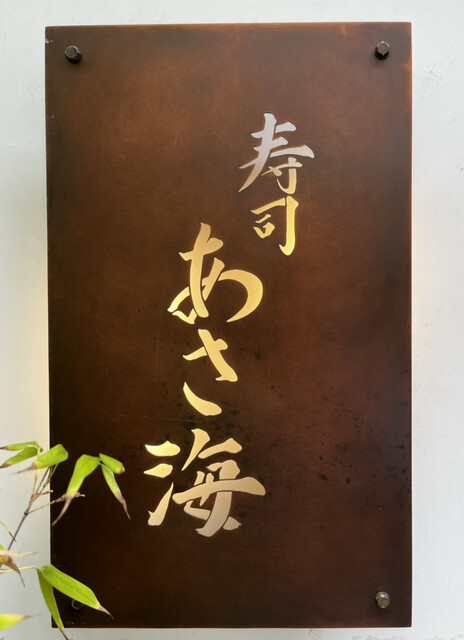 寿司
あさ海